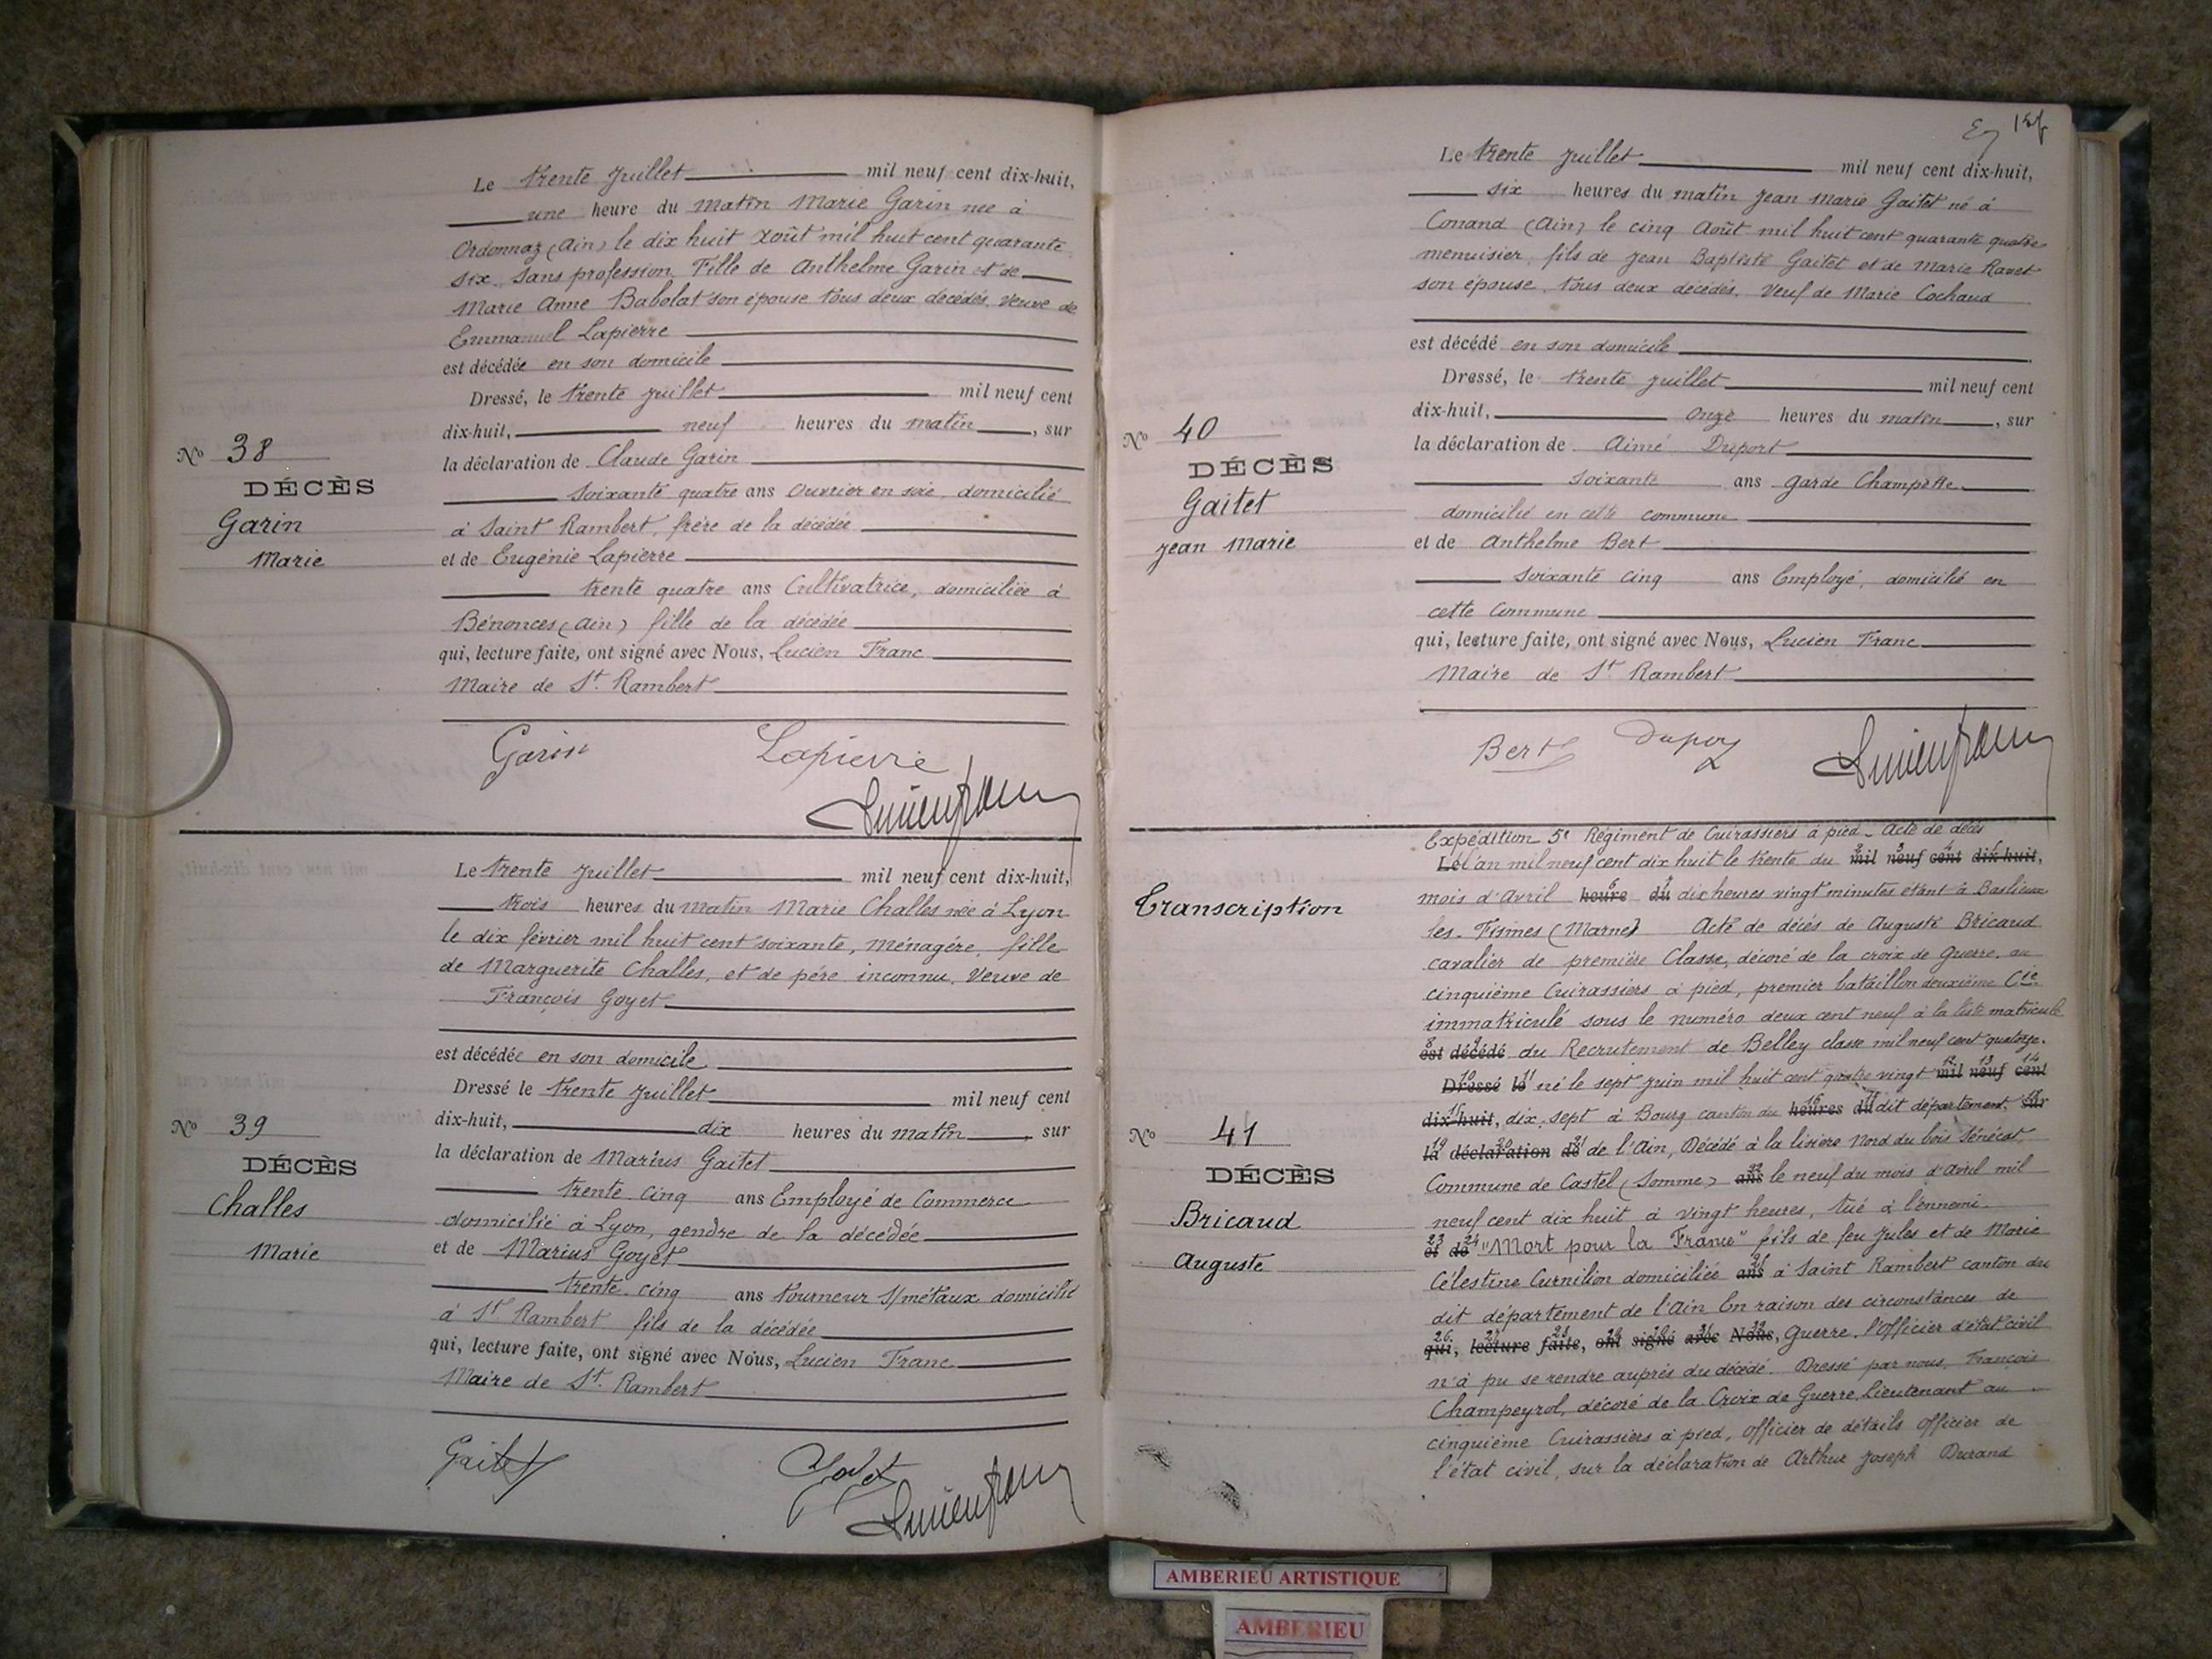 Le trente Juillet mil neuf cent dix-huit,
une heure du matin Marie Garin née à
Ordonnaz (Ain) le dix huit Août mil huit cent quarante
six, sans profession, Fille de Anthelme Garin et de
Marie Anne Babolat son épouse tous deux décédés, veuve de
Emmanuel Lapierre
est décédée en son domicile
Dressé, le trente juillet mil neuf cent
dix-huit, neuf heures du matin, sur
la déclaration de Claude Garin
soixante quatre ans ouvrier en soie, domicilié
à Saint Rambert, frère de la décédée
et de Eugénie Lapierre
trente quatre ans Cultivatrice, domiciliée à
Bénonces (Ain) fille de la décédée
qui, lecture faite, ont signé avec Nous, Lucien Franc
Maire de St. Rambert
No 38
DÉCÈS
Garin
Marie
Garin Lapierre
Lucien Franc
Le trente Juillet mil neuf cent dix-huit,
trois heures du matin Marie Challes née à Lyon
le dix février mil huit cent soixante, ménagère, fille
de Marguerite Challes, et de père inconnu, Veuve de
François Goyet
est décédée en son domicile
Dressé le trente Juillet mil neuf cent
dix-huit, dix heures du matin, sur
la déclaration de Marius Gaitet
trente cinq ans Employé de Commerce
domicilié à Lyon, gendre de la décédée
et de Marius Goyet
trente cinq ans tourneur s/métaux domicilié
à St Rambert fils de la décédée
qui, lecture faite, ont signé avec Nous, Lucien Franc
Maire de St. Rambert
No 39
DÉCÈS
Challes
Marie
Gaitet Goyet
Lucien Franc
Le trente Juillet mil neuf cent dix-huit,
six heures du matin Jean Marie Gaitet né à
Conand (Ain) le cinq Août mil huit cent quarante quatre
menuisier, fils de Jean Baptiste Gaitet et de Marie Ravet
son épouse, tous deux décédés, Veuf de Marie Cochaud
est décédé en son domicile
Dressé, le trente juillet mil neuf cent
dix-huit, onze heures du matin, sur
la déclaration de Aimé Duport
soixante ans garde Champêtre
domicilié en cette commune
et de Anthelme Bert
soixante cinq ans Employé, domicilié en
cette Commune
qui, lecture faite, ont signé avec Nous, Lucien Franc
Maire de St Rambert
No 40
DÉCÈS
Gaitet
Jean Marie
Bert Duport
Lucien Franc
Expédition 5e Régiment de Cuirassiers à pied - Acte de décès
Le L'an mil neuf cent dix huit le trente du mil neuf cent dix-huit,
mois d'Avril heure du dix heures vingt minutes étant à Baslieux
les-Fismes (Marne) Acte de décès de Auguste Bricaud
cavalier de première Classe, décoré de la croix de Guerre, au
cinquième Cuirassiers à pied, premier bataillon deuxième Cie
immatriculé sous le numéro deux cent neuf à la liste matricule
est décédé du Recrutement de Belley classe mil neuf cent quatorze.
Dressé le né le sept Juin mil huit cent quatre vingt mil neuf cent
dix-huit, dix sept à Bourg canton du heures du dit département, sur
la déclaration de de l'Ain, Décédé à la lisière Nord du bois Sénécat,
Commune de Castel (Somme) ans le neuf du mois d'Avril mil
neuf cent dix huit à vingt heures, tué à l'ennemi.
et de "Mort pour la France" fils de feu Jules et de Marie
Célestine Curnilion domiciliée ans à Saint Rambert canton du
dit département de l'Ain En raison des circonstances de
qui, lecture faite, ont signé avec Nous, Guerre, l'Officier d'état civil
n'a pu se rendre auprès du décédé. Dressé par nous, François
Champeyrol, décoré de la Croix de Guerre, Lieutenant au
cinquième Cuirassiers à pied, Officier de détails Officier de
l'état civil, sur la déclaration de Arthur Joseph Durand
Transcription
No 41
DÉCÈS
Bricaud
Auguste
AMBERIEU ARTISTIQUE
AMBERIEU